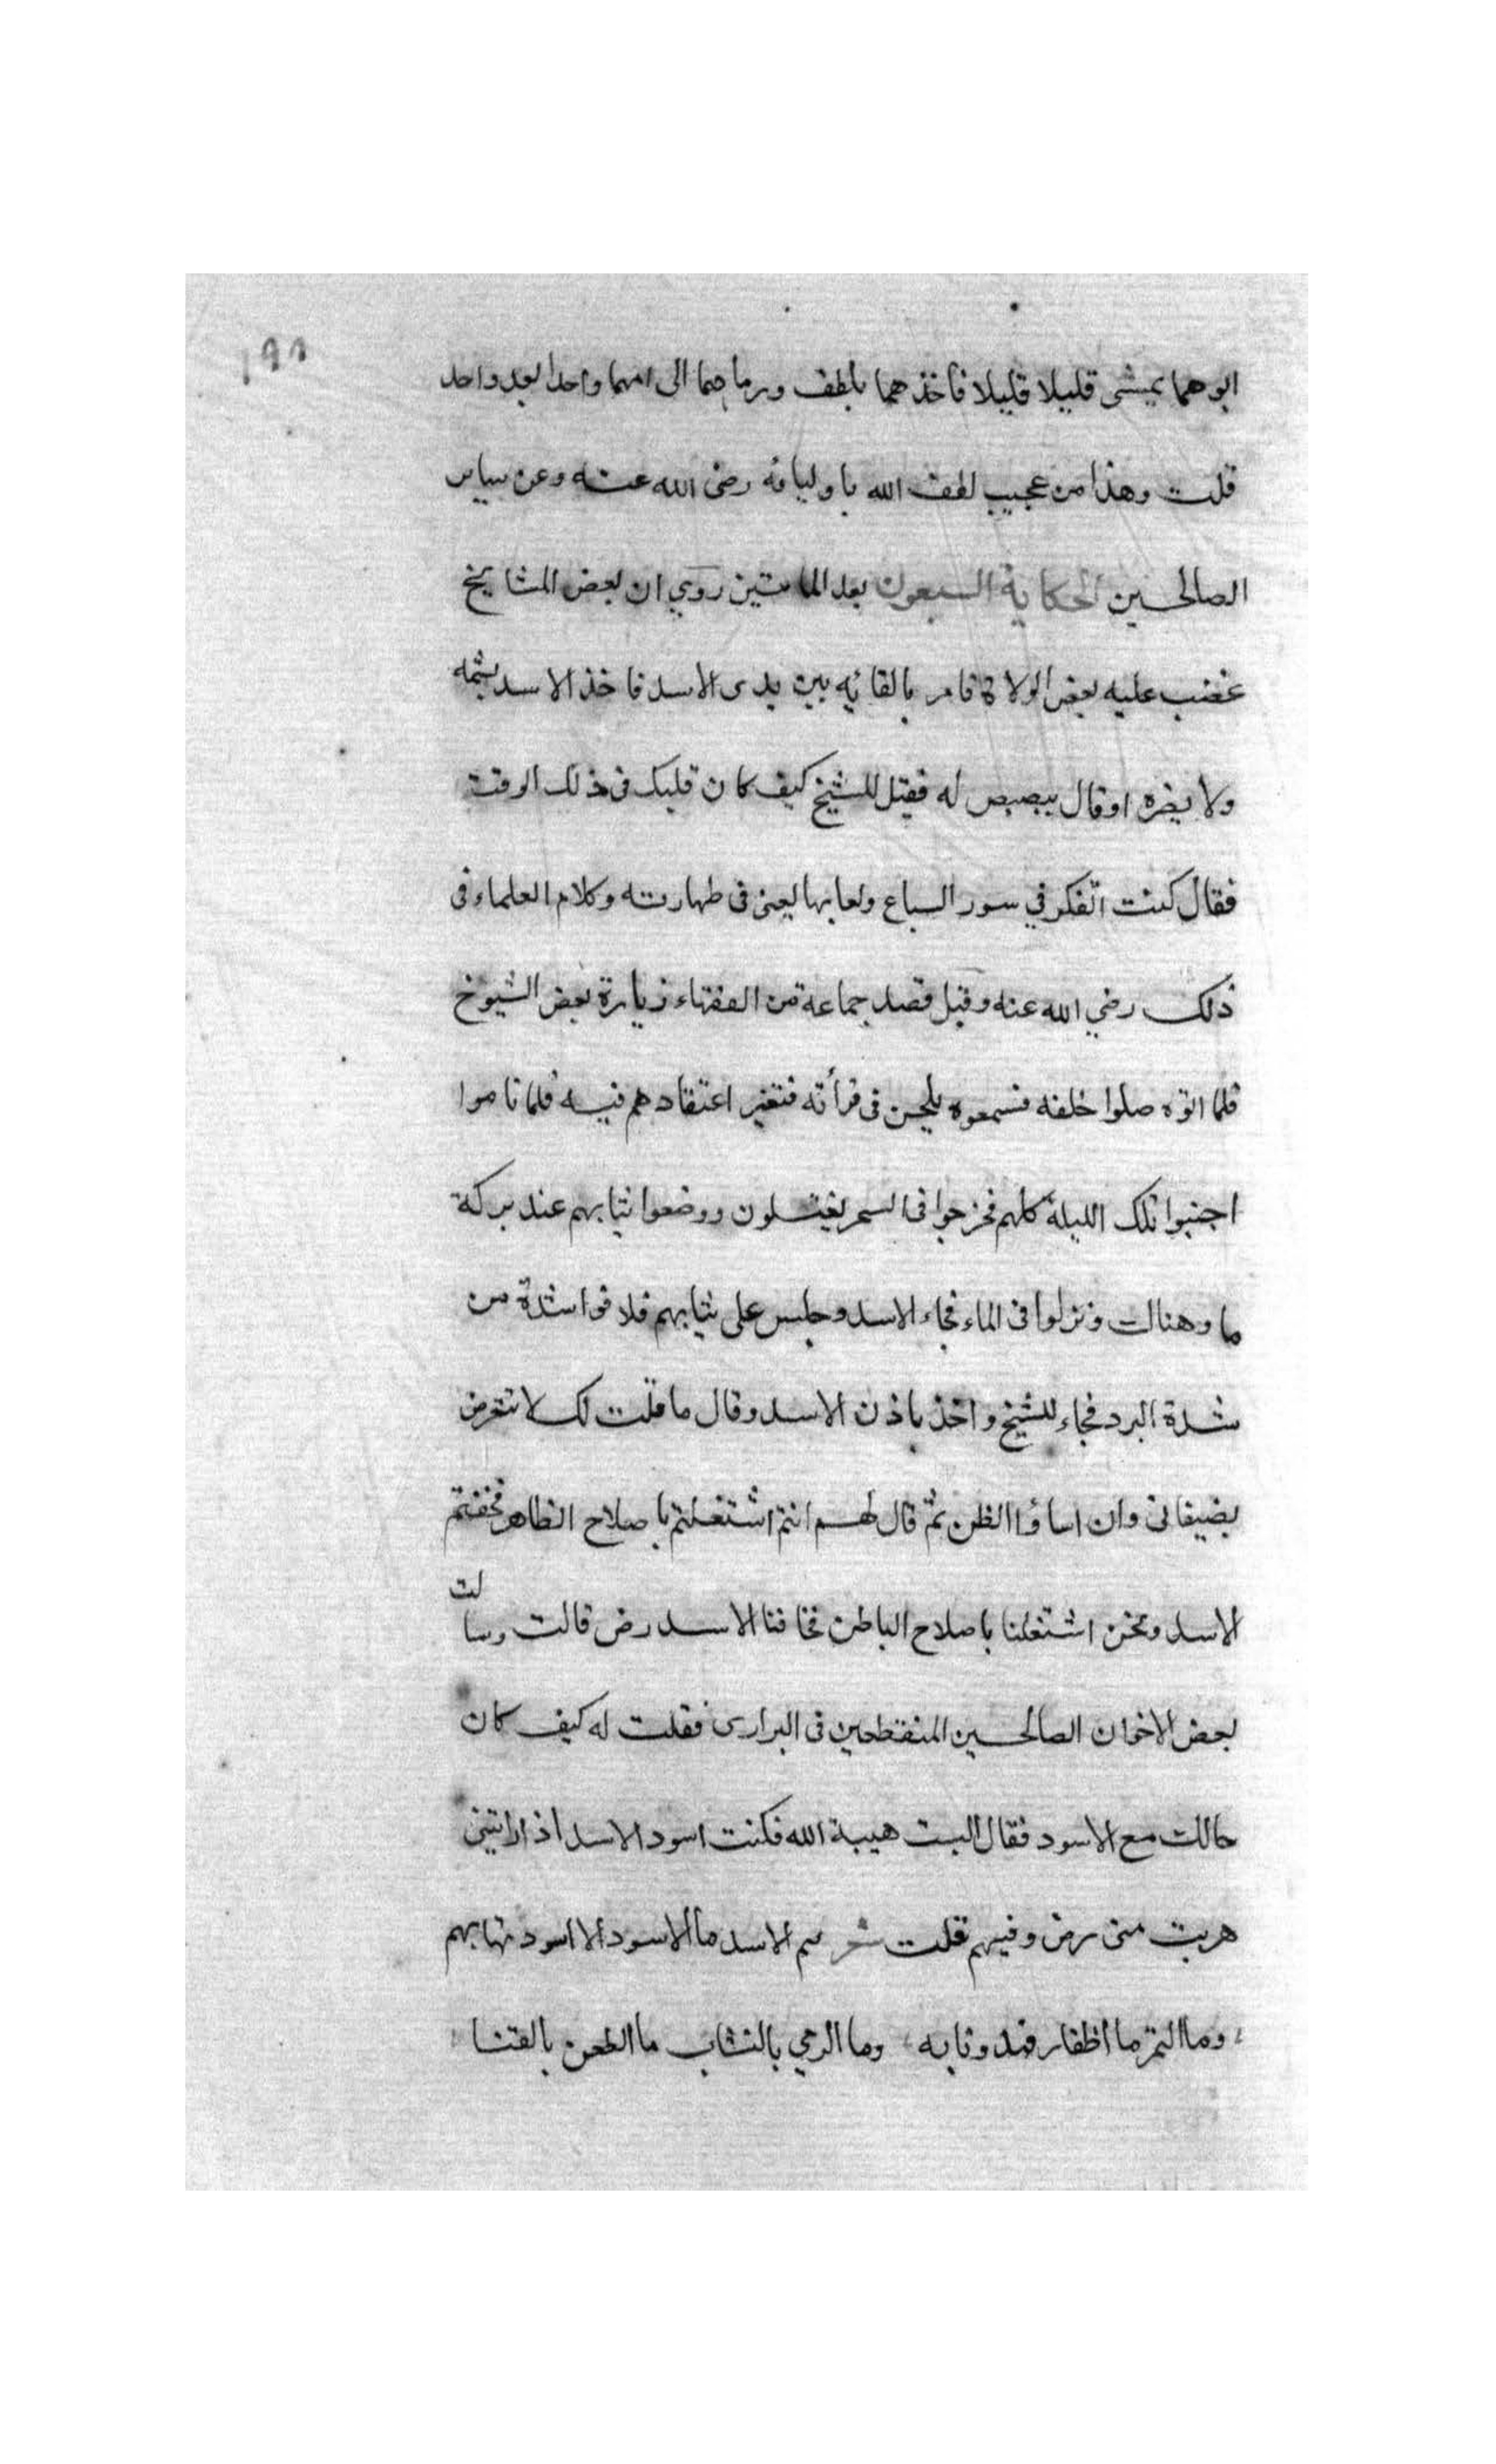 ١٩٩
ابوهما يمشى قليلا قليلا فأخذهما بلطف ورماهما الى امهما واحدا بعد واحد
قلت وهذا من عجيب لطف الله باوليائه رضى الله عنه وعن ساير
الصالحين الحكاية السبعون بعد المائتين روي ان بعض المشايخ
غضب عليه بعض الولاة فامر بالقائه بين يدى الاسد فاخذ الاسد يشمه
ولا يضره اوقال يبصبص له فقيل للشيخ كيف كان قلبك فى ذلك الوقت
فقال كنت اتفكر في سور السباع ولعابها يعنى فى طهارته وكلام العلماء فى
ذلك رضي الله عنه وقيل قصد جماعة من الفقهاء زيارة بعض الشيوخ
فلما اتوه صلوا خلفه فسمعوه يلحن فى قرأته فتغير اعتقادهم فيه فلما ناموا
اجنبوا تلك الليلة كلهم فخرجوا فى السحر يغتسلون ووضعوا ثيابهم عند بركة
ماء هنالك ونزلوا فى الماء فجاء الاسد وجلس على ثيابهم فلاقوا شدة من
شدة البرد فجاء الشيخ واخذ باذن الاسد وقال ما قلت لك لا تتعرض
بضيفانى وان اساؤا الظن ثم قال لهم انتم اشتغلتم باصلاح الظاهر فخفتم
الاسد ونحن اشتغلنا باصلاح الباطن فخافنا الاسد رض قالت وسالت
بعض الاخوان الصالحين المنقطعين فى البرارى فقلت له كيف كان
حالك مع الاسود فقال البست هيبة الله فكنت اسود الاسد اذا راتينى
هربت منى رض وفيهم قلت شعر هم الاسد ما الاسود الا اسود تهابهم
وما النمر ما اظفار فهد ونابه وما الرمي بالنشاب ما الطعن بالقنا